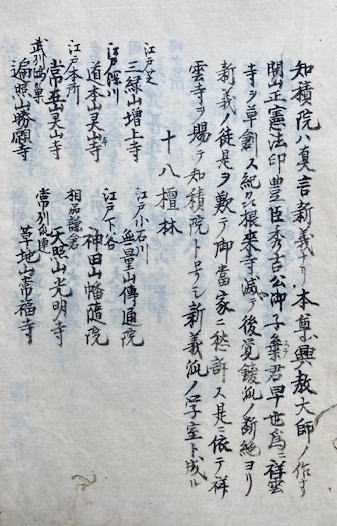 知積院ハ真言新義ナリ本尊ハ興教大師ノ作也
開山正憲法印豊臣秀吉公御子棄君早世為ニ祥雲
寺ヲ草創ス紀久ニ根来寺滅テ後覚鑁派ノ断絶ヨリ
新義ノ徒是ヲ歎テ御當家ニ愁訴ス是ニ依テ祥
雲寺ヲ賜テ知積院ト号シ新義派ノ学室ト成ル
十八檀林
江戸芝
三緑山増上寺
江戸小石川
無量山傳通院
江戸深川
道本山霊山寺
江戸下谷
神田山幡随院
江戸本所
常在霊山寺
相品鎌倉
天照山光明寺
武州鴻巣
遍照山勝願寺
常州瓜連
草地山常福寺